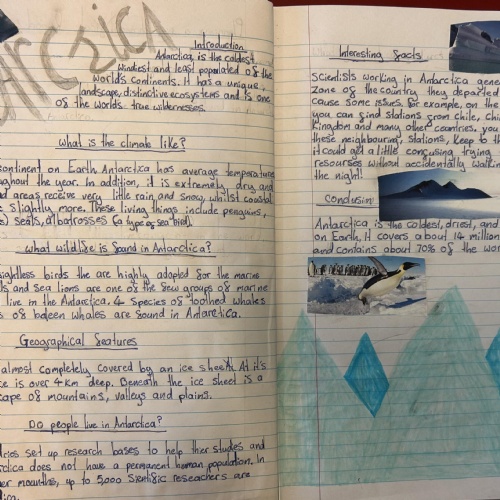 ARCTICA
Introduction
Antarctica, is the coldest
windiest and least populated of the
world's continents. It has a unique,
landscape, distinctive ecosystems and is one
of the worlds true wildernesses.
What is the climate like?
continent on Earth Antarctica has average temperatures
oughout the year. In addition, it is extremely dry and
d areas receive very little rain and snow, whilst coastal
slightly more. These living things include penguins,
) seals, albatrosses (a type of sea bird).
What wildlife is found in Antarctica?
sightless birds the are highly adapted for the marine
ls and Sea lions are one of the few groups of marine
live in the Antarctica. 4 Species of toothed whales
s of baleen whales are found in Antarctica.
Geographical features
almost completely covered by an ice sheet. At it's
ce is over 4km deep. Beneath the ice sheet is a
cape of mountains, valleys and plains.
Do people live in Antarctica?
tries set up research bases to help thier studes and
rctica does not have a permanent human population. In
er mounths, up to 5,000 Sientific reseachers are
Interesting facts
Scientists working in Antarctica gene
zone of the country they departed
cause some issues. For example, on the
you can find stations from Chile, Chi
kingdom and many other countries. you
these neighbouring, stations, keep to th
it could get a little concusing trying
resourses without accidentally walkin
the night!
Conclusion
Antarctica, is the coldest, driest, and
on Earth, it covers about 14 million
and contains about 70% of the wor